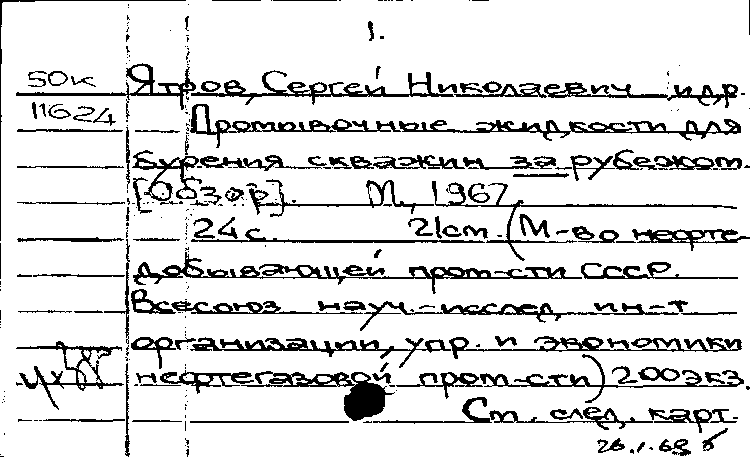 1.
50к Ятров, Сергей Николаевич и др.
11624 Промывочные жидкости для
бурения скважин за рубежом.
[Обзор]. М., 1967.
24 с. 21 см. (М-во нефте-
добывающей пром-сти СССР.
Всесоюз. науч.-исслед. ин-т
организации, упр. и экономики
нефтегазовой пром-сти) 200 экз.
См. след. карт.
26.1.68